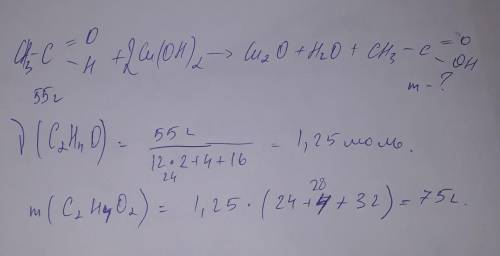 CH₃-C =O -H + 2Cu(OH)₂ → Cu₂O + H₂O + CH₃ - C =O -OH
55г m - ?
ν(C₂H₄O) = 55г / 12·2+4+16 = 1,25 моль.
24
28
m(C₂H₄O₂) = 1,25 · (24+4+32) = 75г.